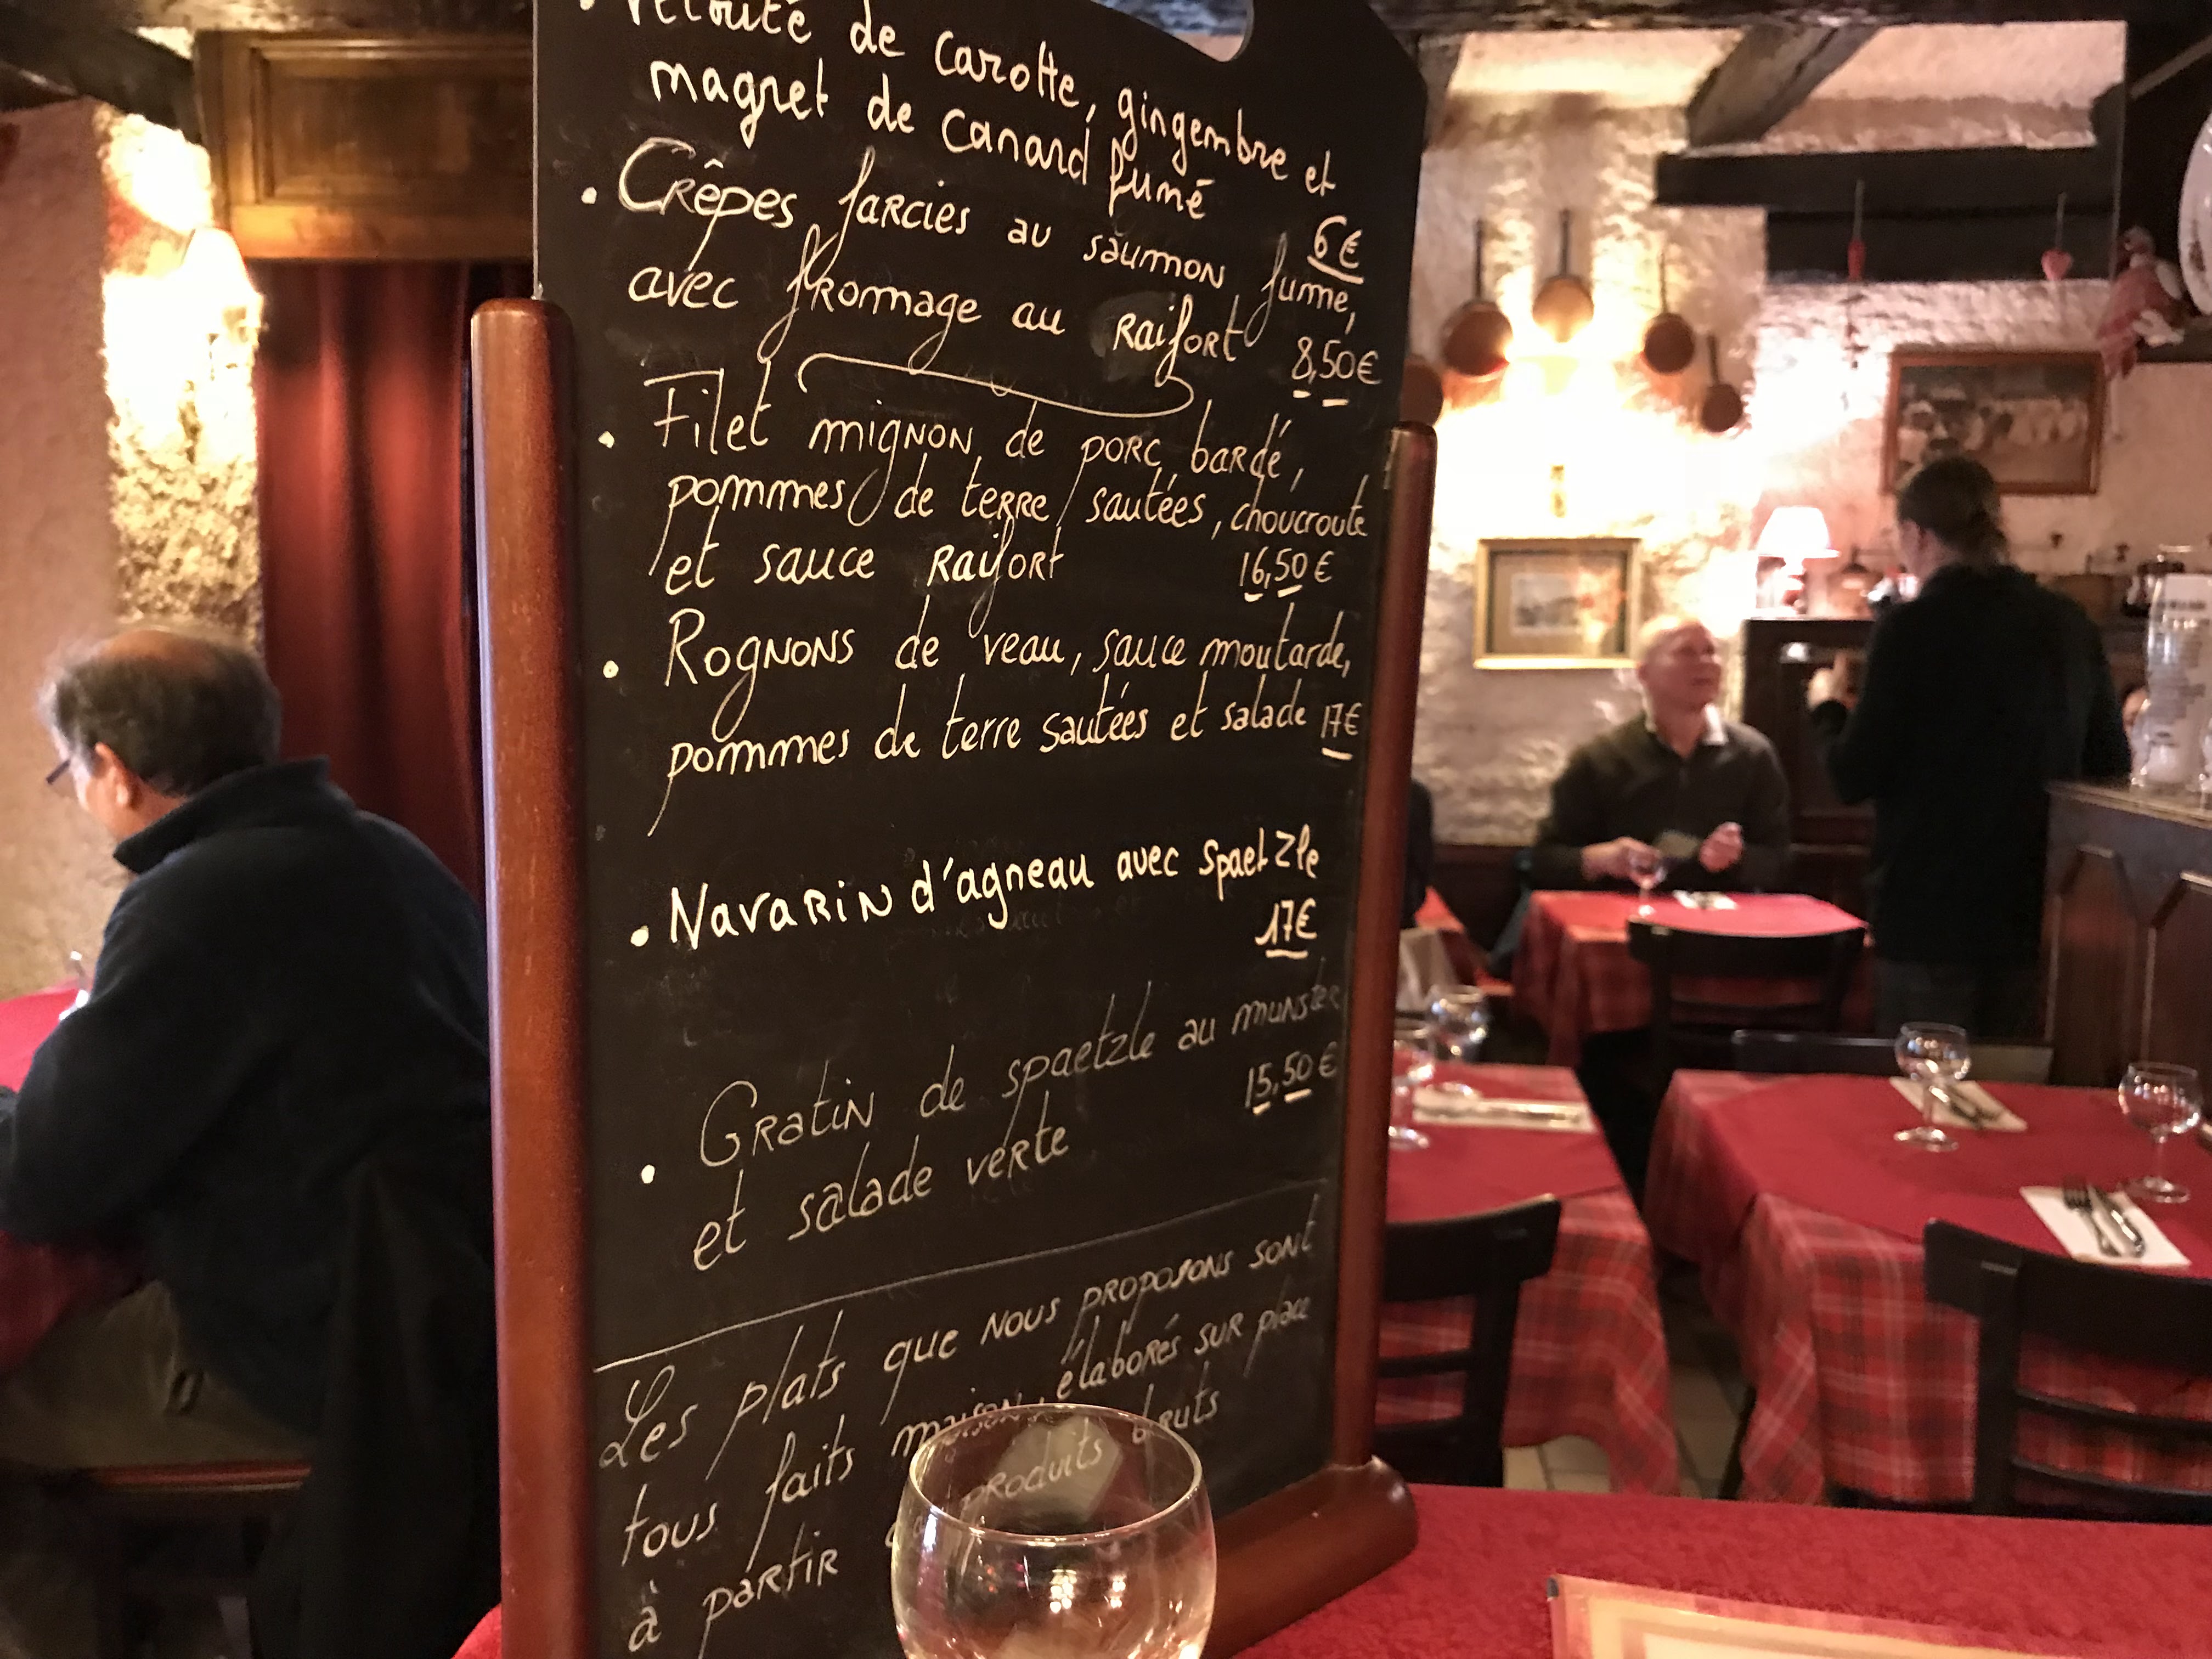 • Velouté de carotte, gingembre et
magret de canard fumé
6€
• Crêpes farcies au saumon fumé,
avec fromage au Raifort 8,50€
• Filet mignon de porc bardé,
pommes de terre sautées, choucroute
et sauce Raifort 16,50€
• Rognons de veau, sauce moutarde,
pommes de terre sautées et salade 17€
• Navarin d'agneau avec spaetzle
17€
• Gratin de spaetzle au munster
15,50€
et salade verte
Les plats que nous proposons sont
tous faits maison, élaborés sur place
à partir de produits bruts